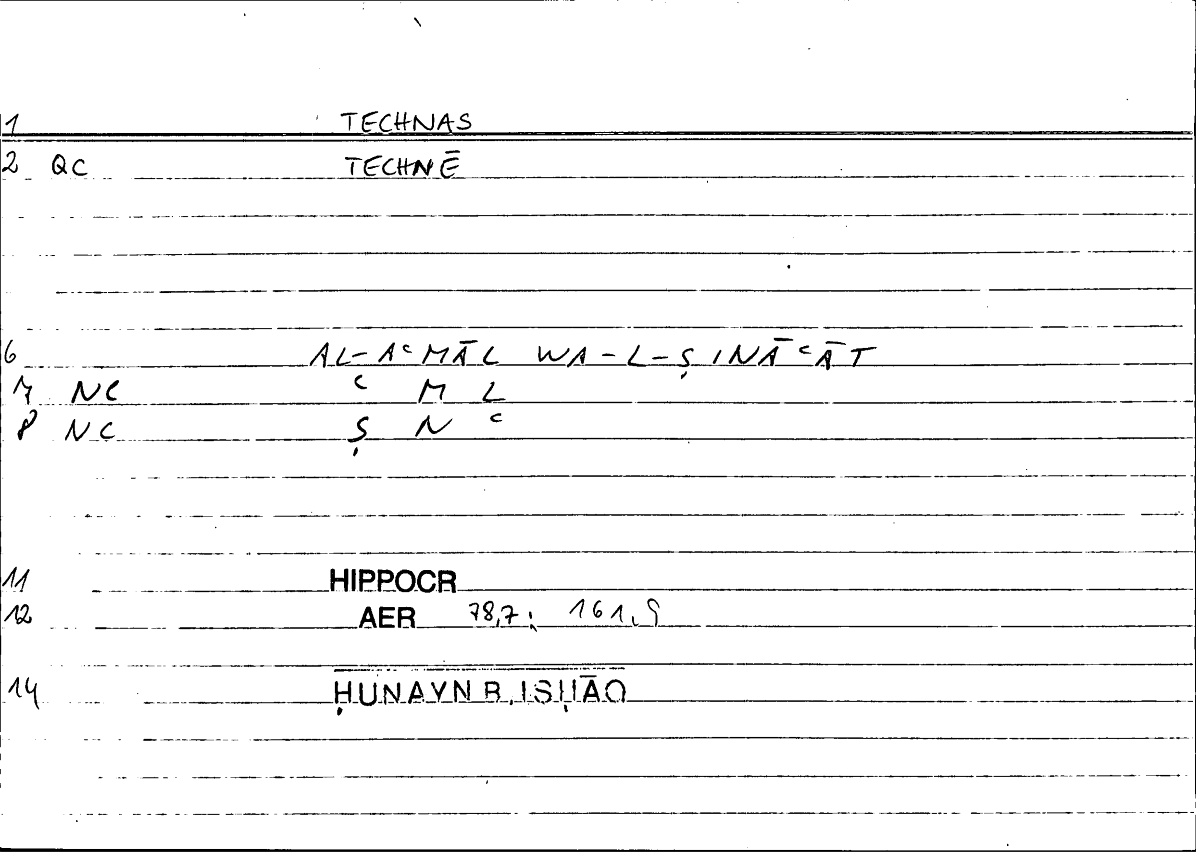 1 TECHNAS
2 QC TECHNĒ
6 AL-AᶜMĀL WA-L-ṢINĀᶜĀT
7 NC ᶜ M L
8 NC Ṣ N ᶜ
11 HIPPOCR
12 AER 78,7; 161,9
14 ḤUNAYN B. ISḤĀQ